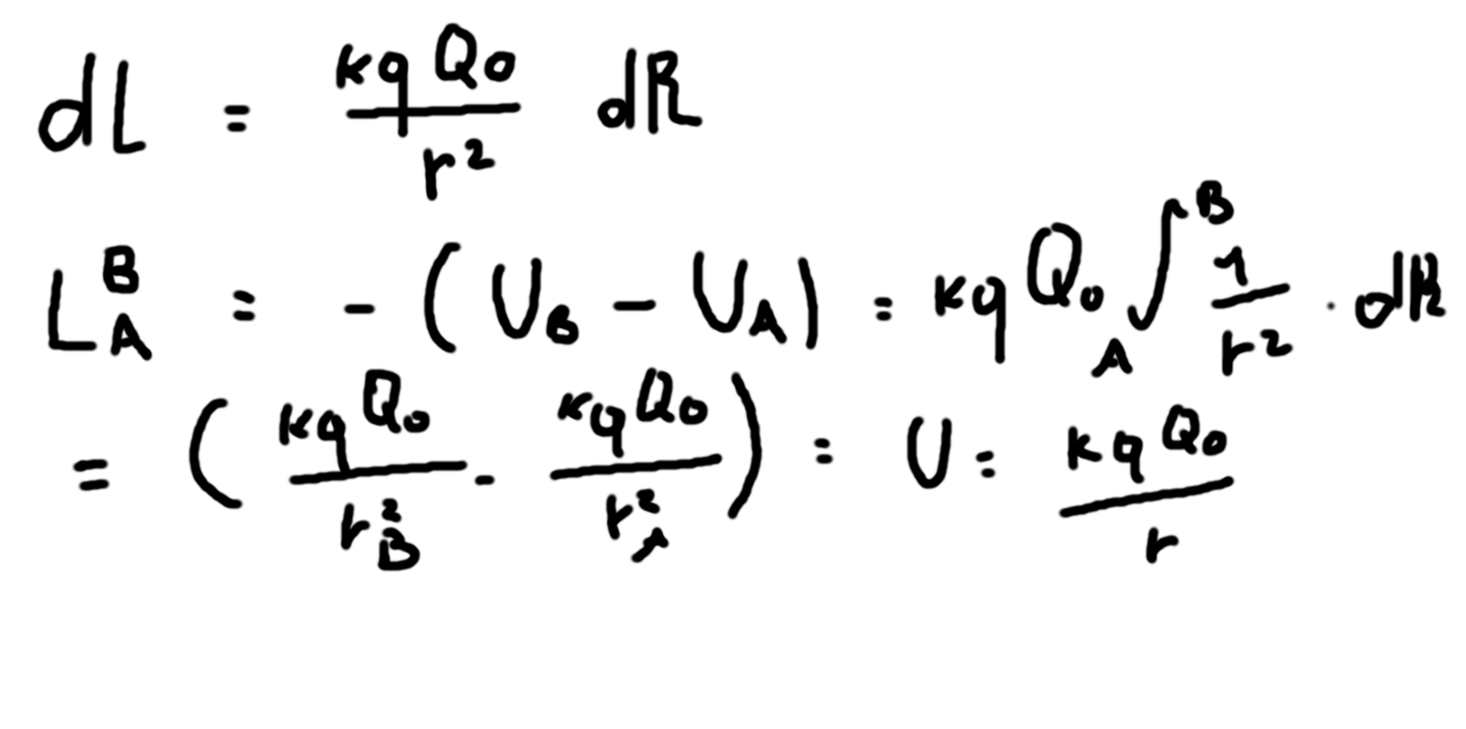 dL = \frac{kqQ_0}{r^2} dR
L_A^B = -(U_B - U_A) = kqQ_0 \int_A^B \frac{1}{r^2} \cdot dR
= \left( \frac{kqQ_0}{r_B^2} - \frac{kqQ_0}{r_A^2} \right) = U = \frac{kqQ_0}{r}